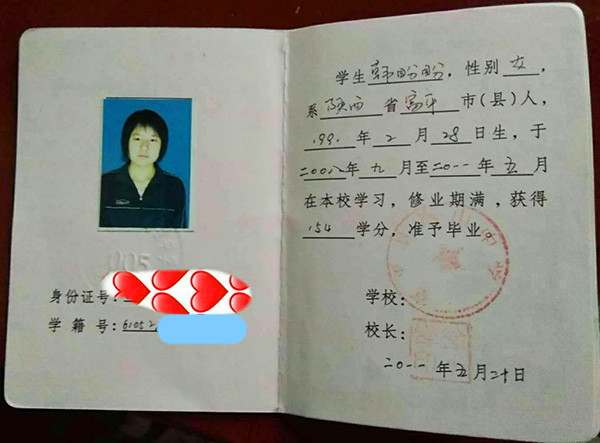 身份证号:
学 籍 号:61052
学生韩盼盼,性别女,
系陕西省富平市(县)人,
199.年2月28日生,于
二00八年九月至二0一一年五月
在本校学习,修业期满,获得
154学分,准予毕业。
学校:
校长:
二0一一年五月二十日